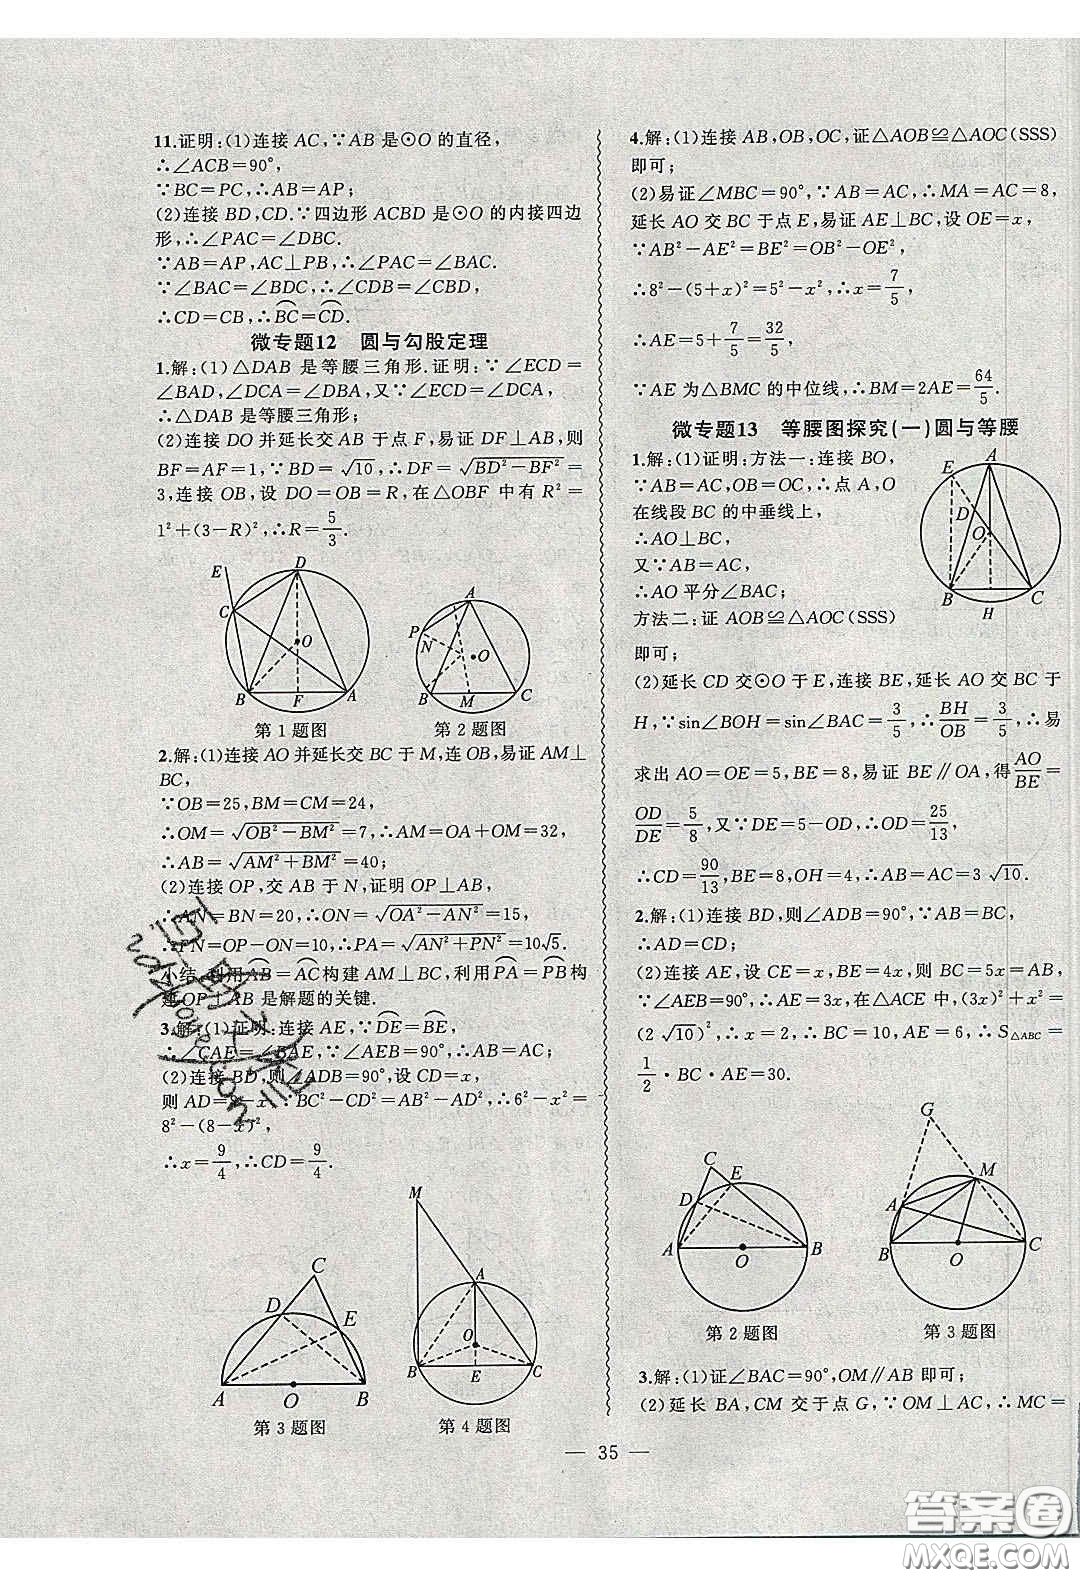 11.证明:(1)连接 AC,∵AB 是⊙O 的直径,
∴∠ACB=90°,
∵BC=PC,∴AB=AP;
(2)连接 BD,CD.∵四边形 ACBD 是⊙O 的内接四边
形,∴∠PAC=∠DBC.
∵AB=AP,AC⊥PB,∴∠PAC=∠BAC.
∵∠BAC=∠BDC,∴∠CDB=∠DBC,
∴CD=CB,∴⌒BC=⌒CD.
微专题12 圆与勾股定理
1.解:(1)△DAB 是等腰三角形.证明:∵∠ECD=
∠BAD,∠DCA=∠DBA,又∵∠ECD=∠DCA,
∴△DAB 是等腰三角形;
(2)连接 DO 并延长交 AB 于点 F,易证 DF⊥AB,则
BF=AF=1,∵BD=√10,∴DF=√(BD²-BF²)=
3,连接 OB,设 DO=OB=R,在△OBF 中有 R²=
1²+(3-R)²,∴R=5/3.
E D C O B F A
第1题图
A P N O B M C
第2题图
2.解:(1)连接 AO 并延长交 BC 于 M,连 OB,易证 AM⊥
BC,
∵OB=25,BM=CM=24,
∴OM=√(OB²-BM²)=7,∴AM=OA+OM=32,
∴AB=√(AM²+BM²)=40;
(2)连接 OP,交 AB 于 N,证明 OP⊥AB,
∴AN=BN=20,∴ON=√(OA²-AN²)=15,
∴PN=OP-ON=10,∴PA=√(AN²+PN²)=10√5.
小结:利用⌒AB=⌒AC构建 AM⊥BC,利用⌒PA=⌒PB构
建 OP⊥AB 是解题的关键.
3.解:(1)证明:连接 AE,∵⌒DE=⌒BE,
∴∠CAE=∠BAE,∵∠AEB=90°,∴AB=AC;
(2)连接 BD,则∠ADB=90°,设 CD=x,
则 AD=8-x,∵BC²-CD²=AB²-AD²,∴6²-x²=
8²-(8-x)²,
∴x=9/4,∴CD=9/4.
C D E A O B
第3题图
M A O B E C
第4题图
4.解:(1)连接 AB,OB,OC,证△AOB≌△AOC(SSS)
即可;
(2)易证∠MBC=90°,∵AB=AC,∴MA=AC=8,
延长 AO 交 BC 于点 E,易证 AE⊥BC,设 OE=x,
∵AB²-AE²=BE²=OB²-OE²,
∴8²-(5+x)²=5²-x²,∴x=7/5,
∴AE=5+7/5=32/5,
∵AE 为△BMC 的中位线,∴BM=2AE=64/5.
微专题13 等腰图探究(一)圆与等腰
1.解:(1)证明:方法一:连接 BO,
∵AB=AC,OB=OC,∴点 A,O
在线段 BC 的中垂线上,
∴AO⊥BC,
又∵AB=AC,
∴AO 平分∠BAC;
方法二:证 AOB≌△AOC(SSS)
即可;
A E D O B H C
(2)延长 CD 交⊙O 于 E,连接 BE,延长 AO 交 BC 于
H,∵sin∠BOH=sin∠BAC=3/5,∴BH/OB=3/5,∴易
求出 AO=OE=5,BE=8,易证 BE∥OA,得AO/BE=
OD/DE=5/8,又∵DE=5-OD,∴OD=25/13,
∴CD=90/13,BE=8,OH=4,∴AC=3√10.
2.解:(1)连接 BD,则∠ADB=90°,∵AB=BC,
∴AD=CD;
(2)连接 AE,设 CE=x,BE=4x,则 BC=5x=AB,
∵∠AEB=90°,∴AE=3x,在△ACE 中,(3x)²+x²=
(2√10)²,∴x=2,∴BC=10,AE=6,∴S△ABC=
1/2·BC·AE=30.
C E D A O B
第2题图
G M A B O C
第3题图
3.解:(1)证∠BAC=90°,OM∥AB 即可;
(2)延长 BA,CM 交于点 G,∵OM⊥AC,∴MC=
— 35 —
答案圈
MXQE.COM